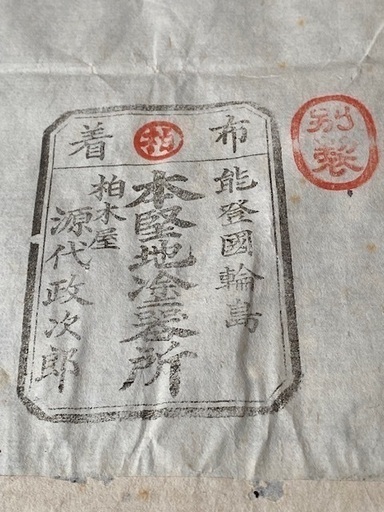 布着
能登國輪島
本堅地塗器所
柏木屋
源代政次郎
別製